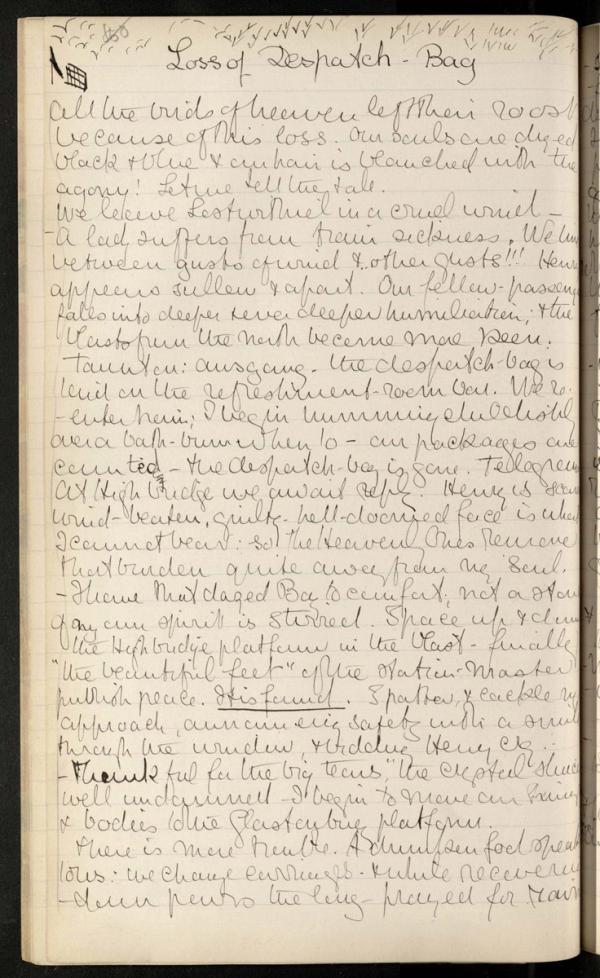 Loss of Despatch-Bag
all the birds of heaven left their roost
because of this loss. Our souls are dyed
black & blue & our hair is blanched with the
agony! Let me tell the tale.
We leave Lostwithiel in a cruel wind –
– A lady suffers from train sickness. We
between gusts of wind & other gusts!!! Henry
appears sullen & apart. Our fellow-passen
falls into deeper & ever deeper humiliation; & the
blasts from the north become more keen.
Taunton: ausgang. the despatch-bag is
laid on the refreshment-room bar. We re-
-enter train; I begin humming
over a bath-bun when lo – our packages are
counted – the despatch-bag is gone. Telegram
At Highbridge we await reply. Henry's
wind-beaten, guilty-hell-doomed face is what
I cannot bear: so the Heavenly Ones remove
that burden quite away from my Soul.
– I have that dazed Boy to comfort; not a
of my own spirit is stirred. I pace up & down
the Highbridge platform in the blast – finally
"the beautiful feet" of the station-master
publish peace. It is found. I patter, & cackle my
approach, announcing safety with a smile
through the window, & bidding Henry cry...
– Thankful for the big tears, "the crystal sluice
well undammed – I begin to move our
& bodies to the Glastonbury platform.
There is more trouble. A drunken fool speaks
to us: we change carriages – & while recovering
– down pours the long-prayed for Rain